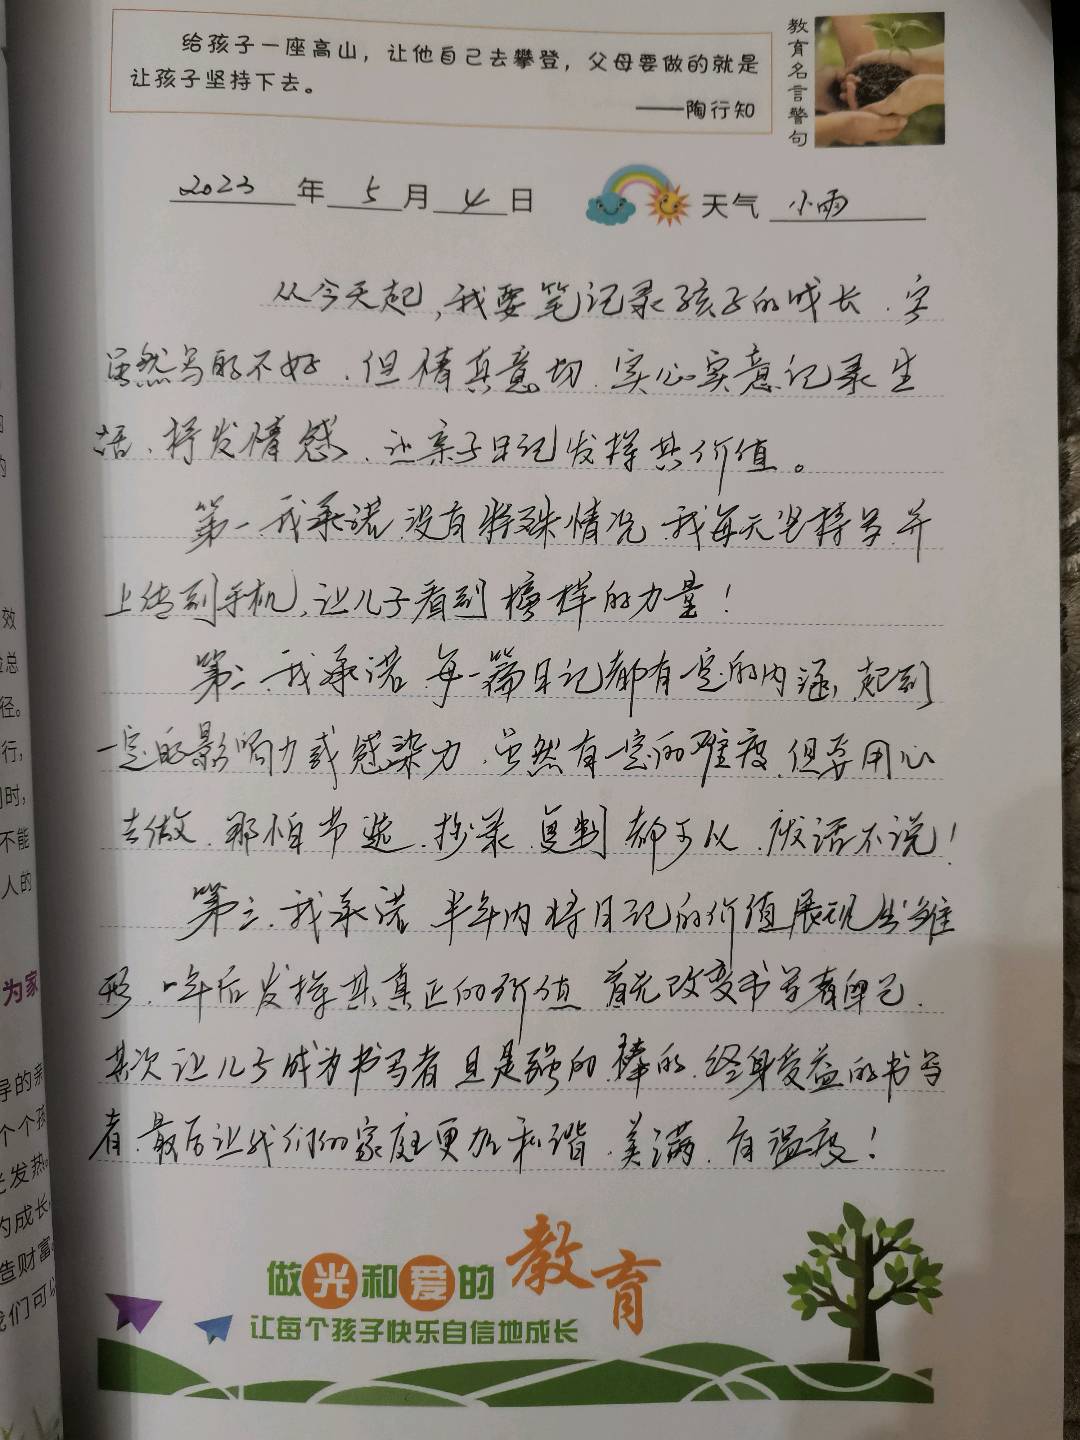 给孩子一座高山，让他自己去攀登，父母要做的就是
让孩子坚持下去。
——陶行知
教育名言警句
2023年5月4日 天气 小雨
从今天起，我要笔记录孩子的成长，字
虽然写的不好，但情真意切，实心实意记录生
活，抒发情感，让亲子日记发挥其价值。
第一，我承诺，没有特殊情况，我每天坚持写，并
上传到手机，让儿子看到榜样的力量！
第二，我承诺，每一篇日记都有一定的内涵，起到
一定的影响力或感染力，虽然有一定的难度，但要用心
去做，那怕节选，抄录，复制都可以，废话不说！
第三，我承诺，半年内将日记的价值展现出雏
形，一年后发挥其真正的价值，首先改变书写者自己，
其次让儿子成为书写者，且是强的，棒的，终身受益的书写
者，最后让我们的家庭更加和谐，美满，有温度！
做光和爱的教育
让每个孩子快乐自信地成长
效
总
径。
行，
时，
不能
人的
为家
导的亲
个个孩
发热。
的成长
造财富
我们可以